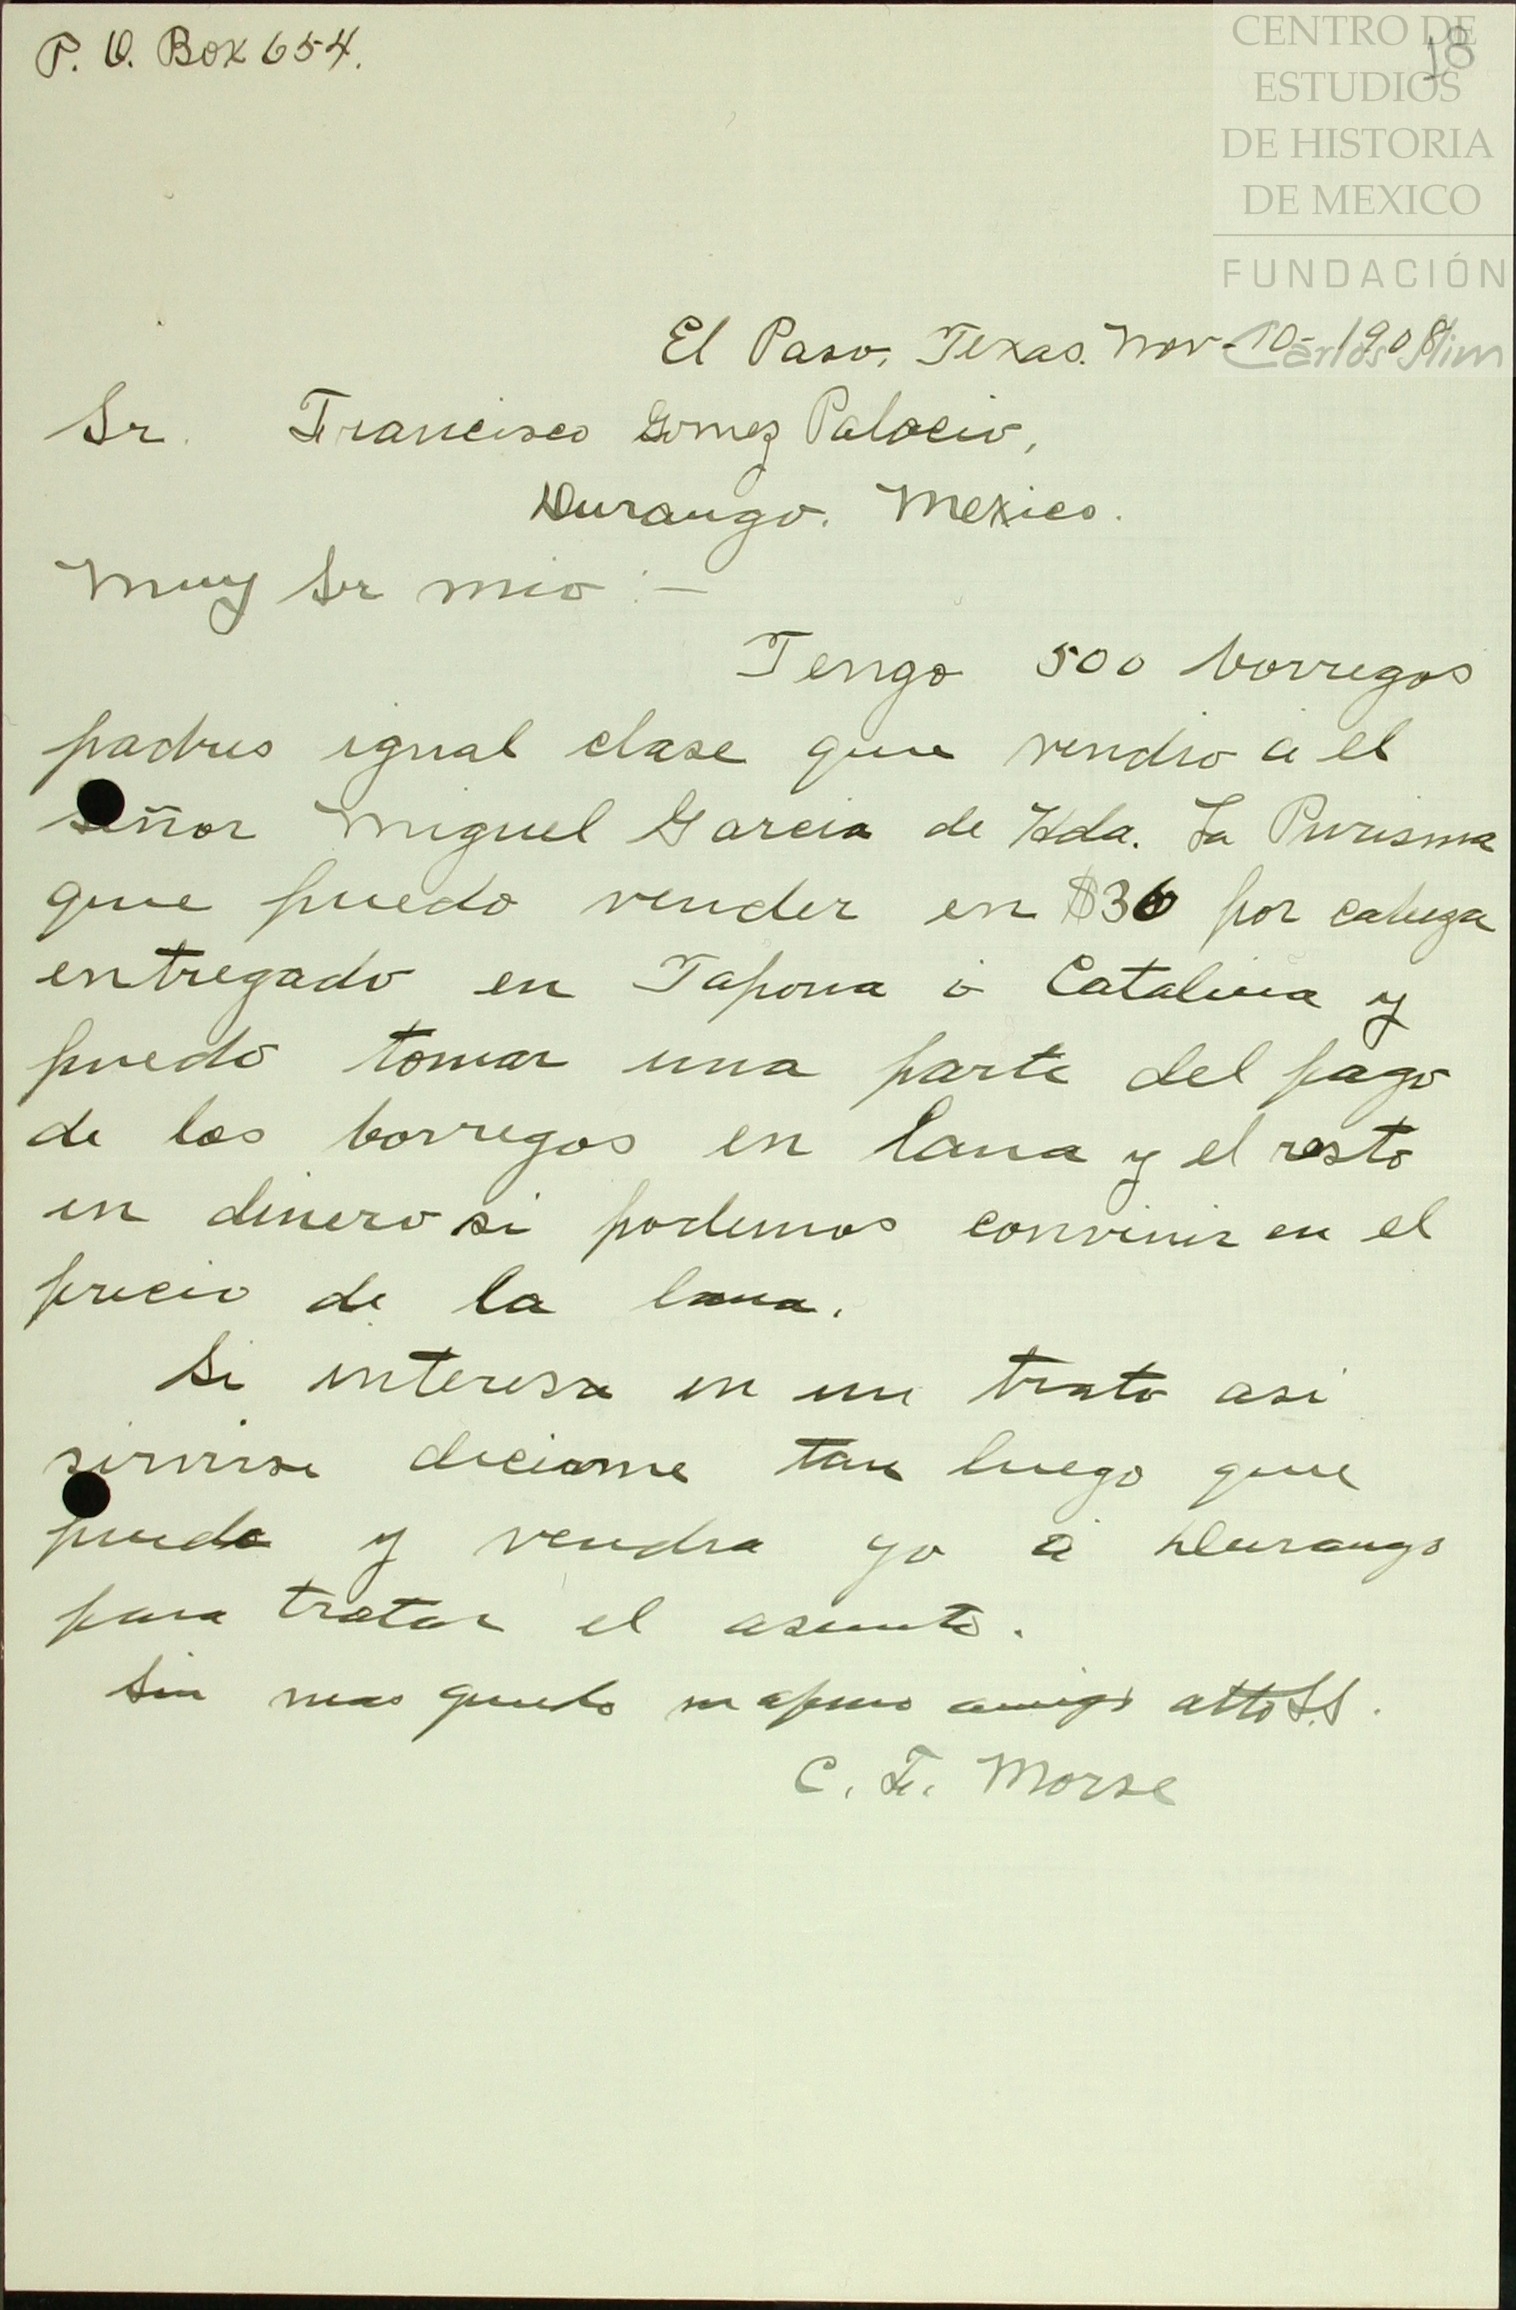 P. O. Box 654.
18
CENTRO DE
ESTUDIOS
DE HISTORIA
DE MEXICO
FUNDACIÓN
Carlos Slim
El Paso, Texas. Nov-10-1908
Sr. Francisco Gomez Palacio,
Durango. Mexico.
Muy Sr mio:—
Tengo 500 borregos
padres igual clase que vendio á el
señor Miguel Garcia de Hda. La Purisma
que puedo vender en $36 por cabeza
entregado en Tapona ó Catalina y
puedo tomar una parte del pago
de los borregos en lana y el resto
en dinero si podemos convinir en el
precio de la lana.
Si interesa en un trato asi
sirvirse deciarme tan luego que
puede y vendra yo á Durango
para tratar el asunto.
Sin mas quedo su afmo amigo atto S.S.
C. F. Morse